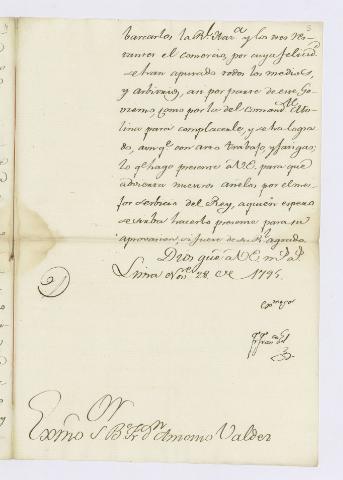 barcarlos la Rl. Haza. y los dos res-
tantes el comercio, por cuya felicid.
se han apurado todos los medios,
y arbitrios, asi por parte de este Go-
vierno, como por la del Comandte. Mo-
lina para complacerle, y se ha logra-
do, aunqe. con arto trabajo, y fatigas;
lo qe. hago presente a V.E. para que
advierta nuestros anelos por el me-
jor servicio del Rey, a quien espero
se sirva hacerlo presente para su
aprovacion, si fuere de su Rl. agrado.
Dios gue. a V.E. ms. as.
Lima Nove. 28 de 1795.
Exmo. Sor.
Exmo. Sor. Bo. Fr. Dn. Antonio Valdes